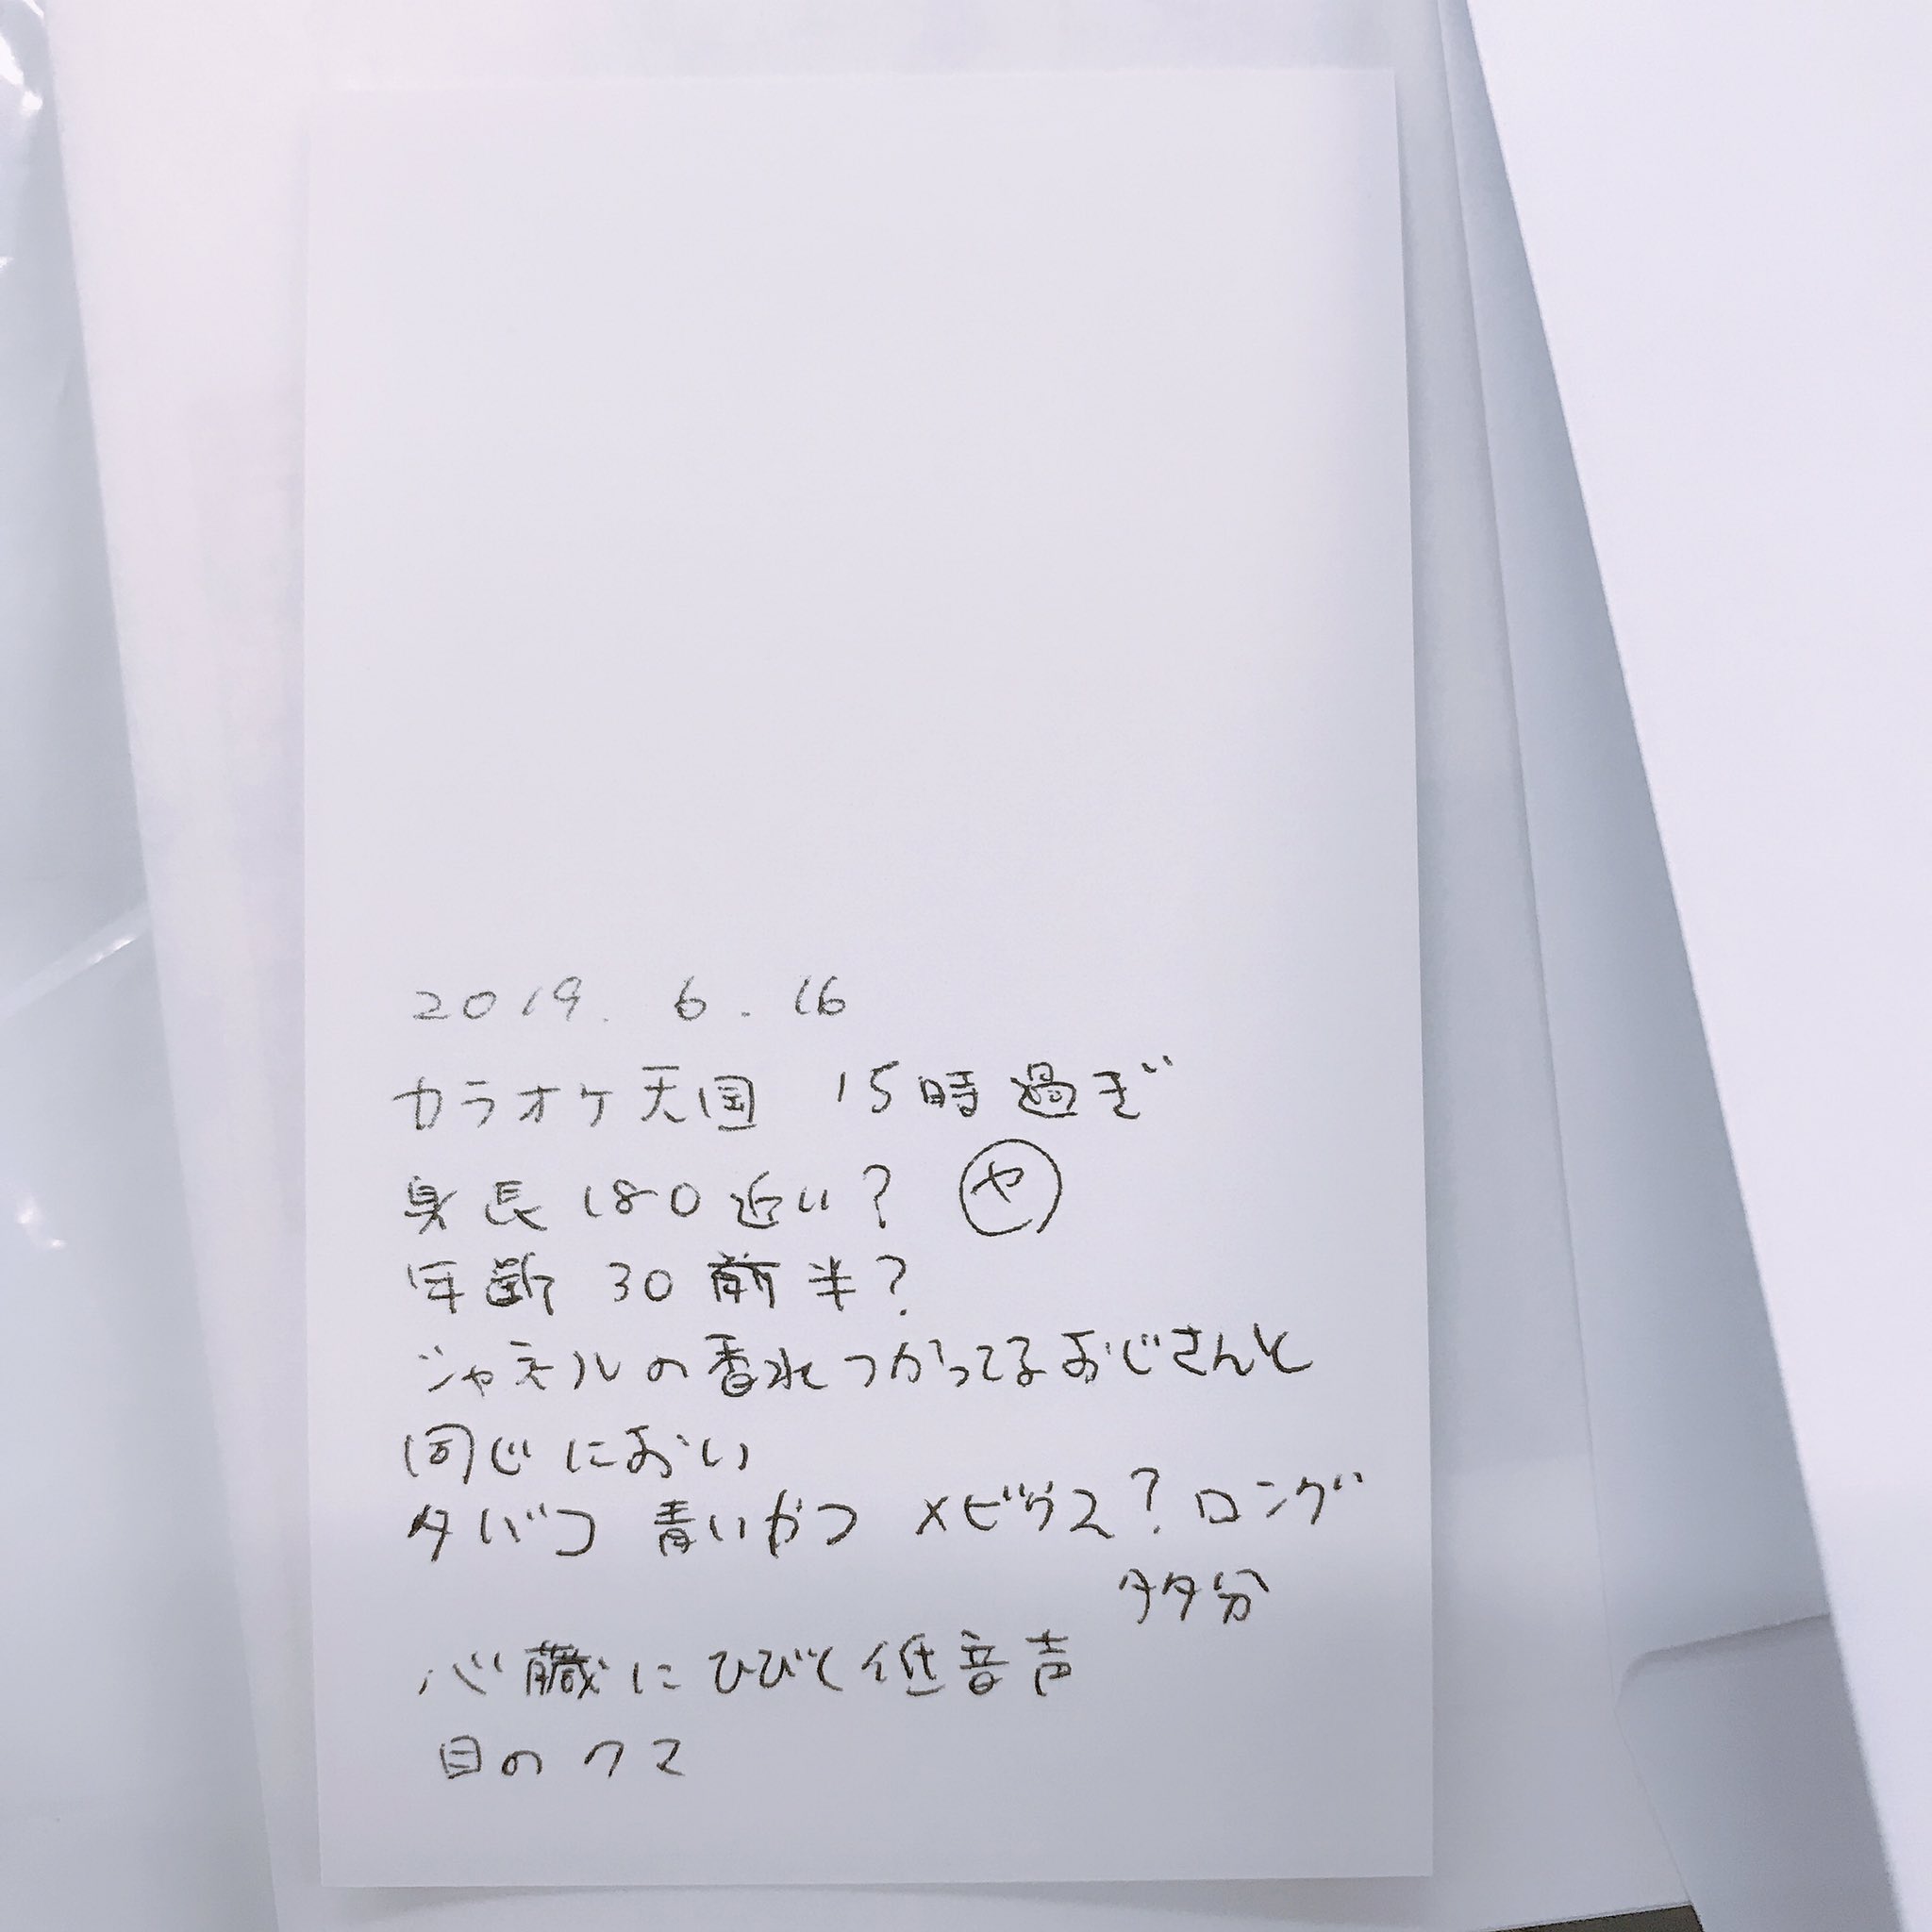 2019. 6. 16
カラオケ天国 15時過ぎ
身長180近い? ㋳
年齢 30前半?
シャネルの香水つかってるおじさんと
同じにおい
タバコ 青いかつ メビウス? ロング
多分
心臓にひびく低音声
目のクマ